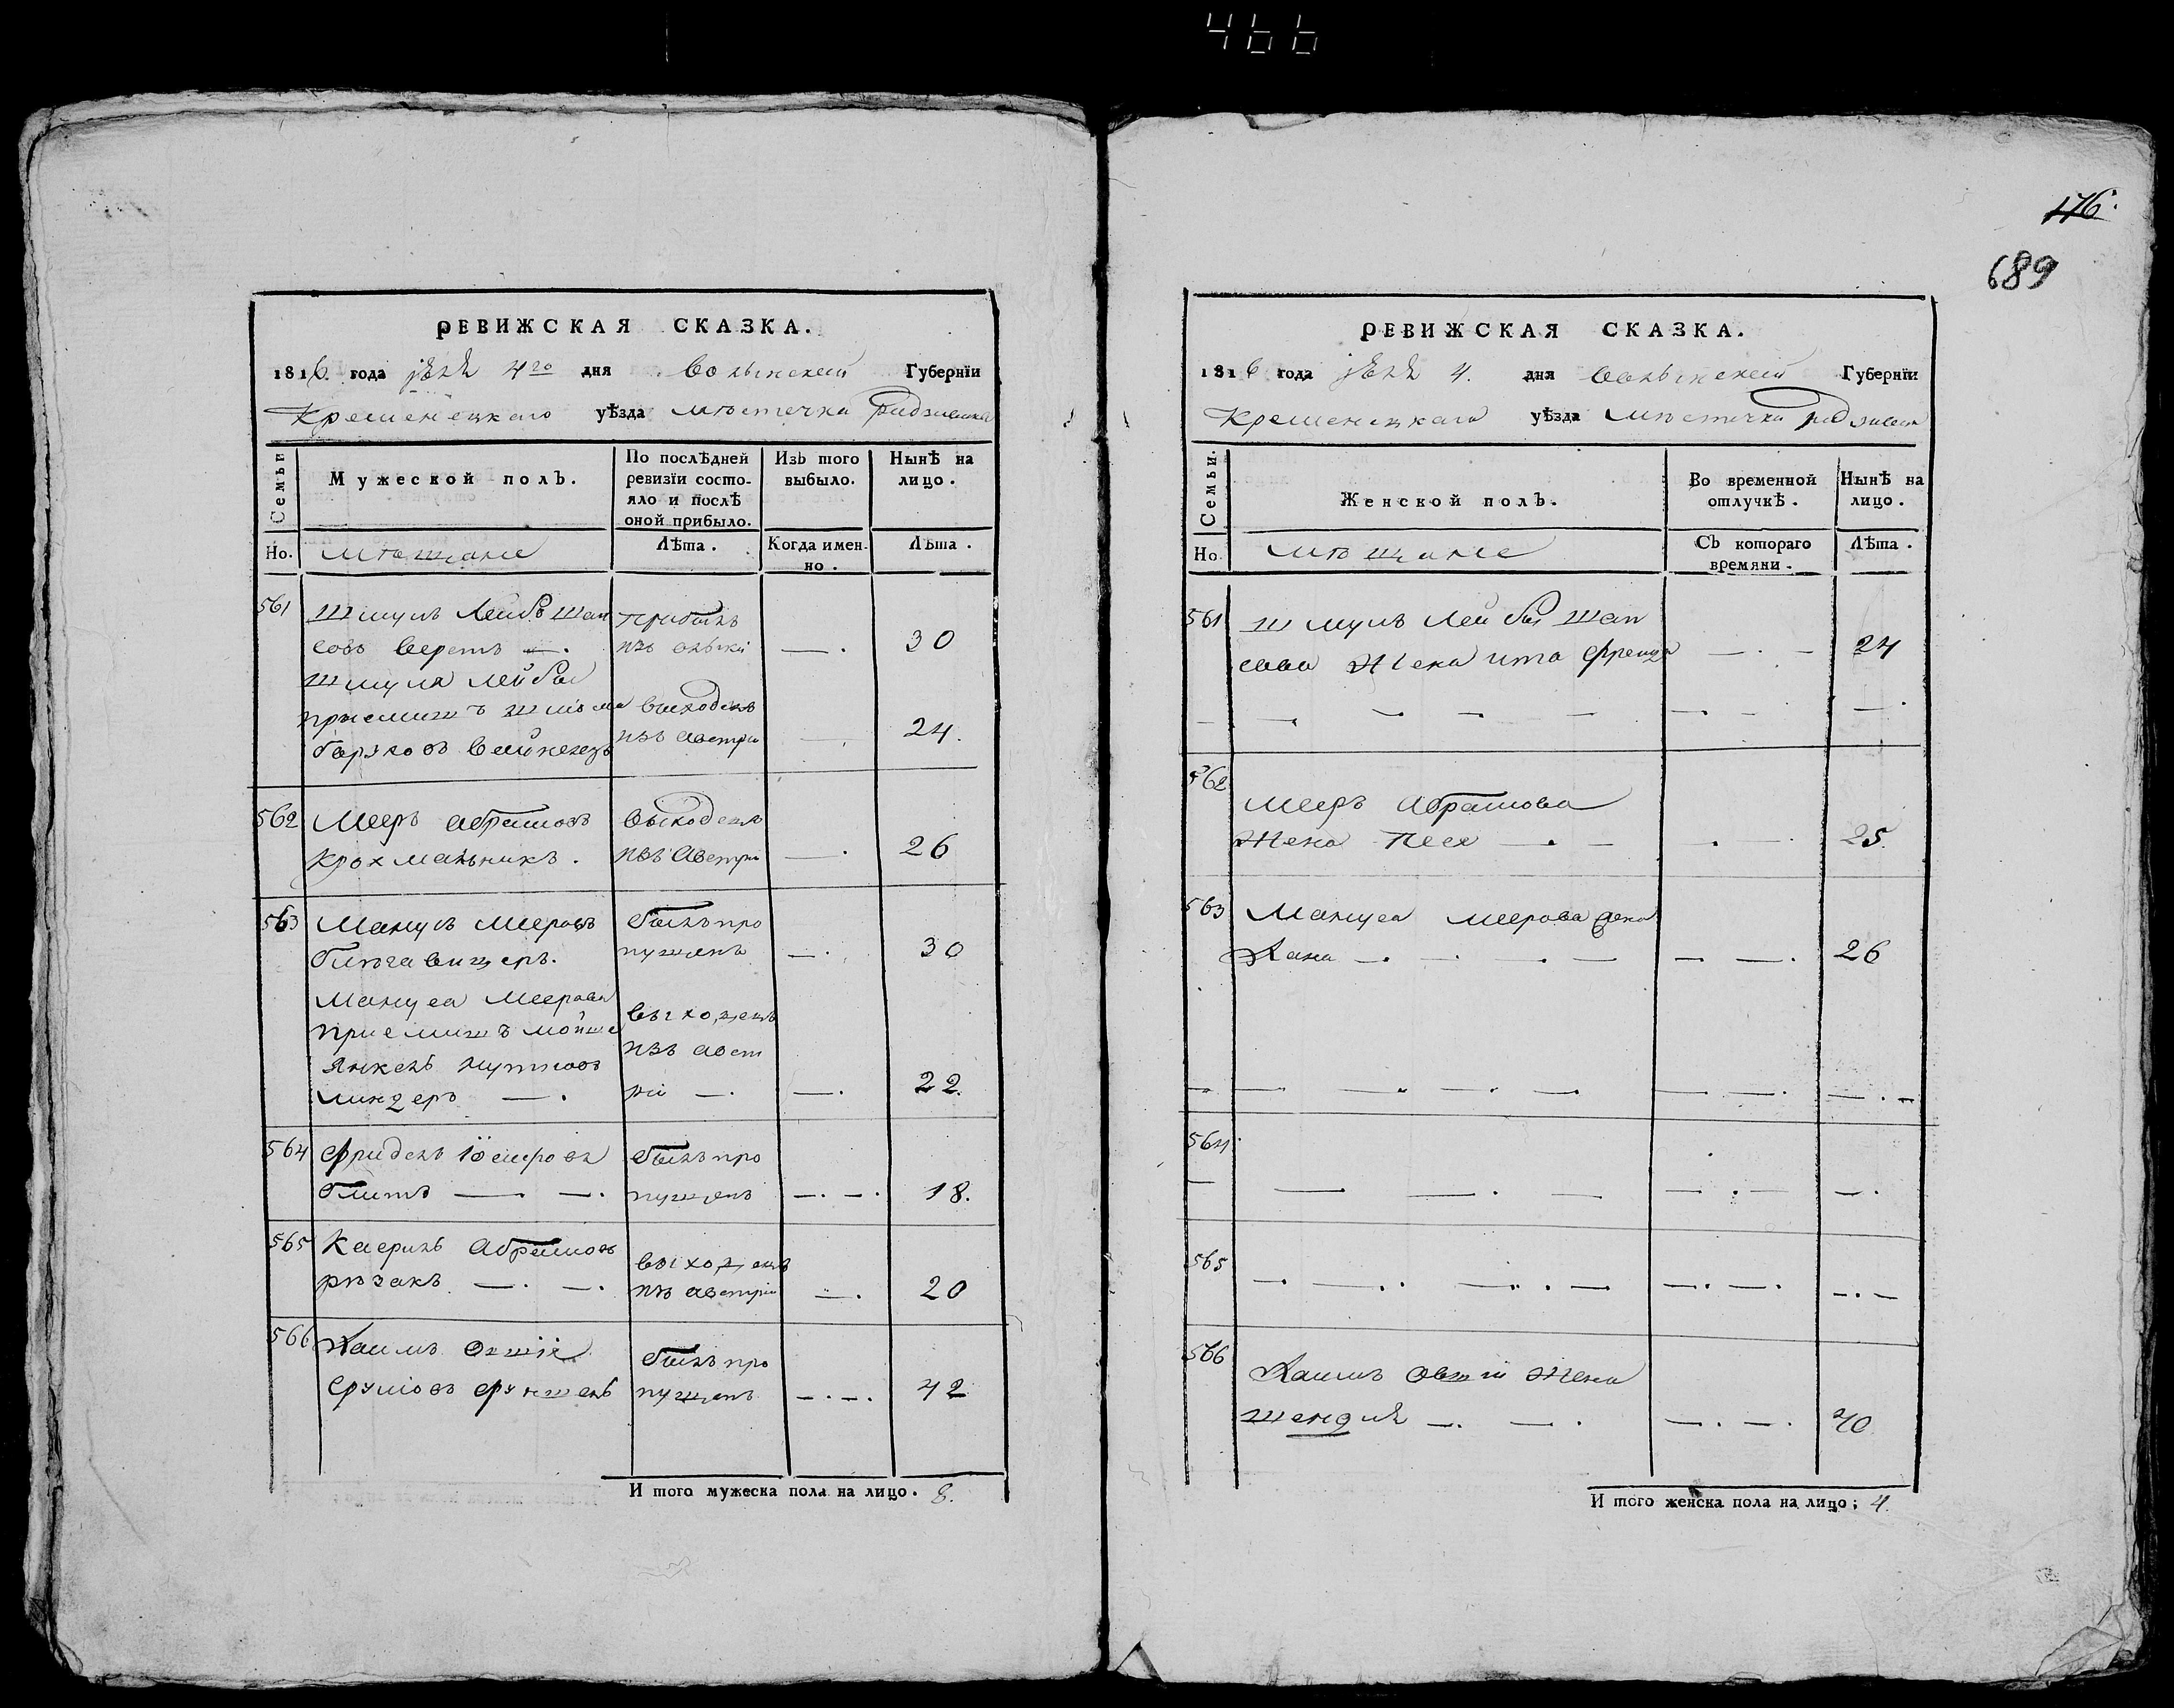 466
176.
689
РЕВИЖСКАЯ СКАЗКА.
1816. года 4го дня Волынской Губернїи
Кременецкаго уѣзда мѣстечка Радзивила
Семьи
Мужеской полЪ.
По послѣдней ревизїи состояло и послѣ оной прибыло.
ИзЪ того выбыло.
Нынѣ на лицо.
Но. мѣщане
Лѣта.
Когда именно.
Лѣта.
561 Шмуль Лейбъ Шап
совъ Веретъ — .
прибылъ
изъ олыки
— . 30
Шмуля Лейбы
приемышъ
выходецъ
изъ австри
— 24.
562 Мееръ абрамовъ
крохмальникъ.
выходецъ
изъ Австри
— . 26
563 Манусъ Мееровъ
былъ про
пущенъ
— . 30
Мануса Меерова
приемышъ мойше
Янкель нутовъ
выходецъ
изъ авст
рїи — .
— . 22.
564 Фридель
блитъ — — .
былъ про
пущенъ
— . — . 18.
565 Касриль Абрамовъ
рѣзакъ — . — .
выходецъ
изъ австріи
— . 20
566 Хаимъ
Сруліовъ
былъ про
пущенъ
— . — . 42
И того мужеска пола на лицо. 8.
РЕВИЖСКАЯ СКАЗКА.
1816 года 4. дня Волынской Губернїи
Кременецкаго уѣзда мѣстечка Радзивила
Семьи.
Женской полЪ.
Во временной отлучкѣ.
Нынѣ на лицо.
Но. мѣщане
СЪ котораго времяни.
Лѣта.
561 Шмуль Лейбы Шап
сова Жена ита френда — . — 24
562
Мееръ Абрамова
Жена Песя — . — . — 25.
563 Мануса Меерова жена
Хана — . — . — — . 26
564.
565
566
Хаимъ Жена
шендля — . — . — . — . 40
И того женска пола на лицо; 4.